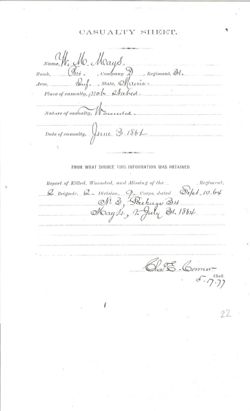 CASUALTY SHEET.
Name, W. M. Mays.
Rank, Pvt. Company D Regiment, 31.
Arm, Inf. State, Maine
Place of casualty, not stated.
Nature of casualty, Wounded
Date of casualty, June 3 1864
FROM WHAT SOURCE THIS INFORMATION WAS OBTAINED.
Report of Killed, Wounded, and Missing of the Regiment,
2 Brigade, 2 Division, 9 Corps, dated Sept. 10. 64
No 3, Package 34
May 4, to July 31. 1864
Chas E. Connor
Clerk.
5-17-77
22